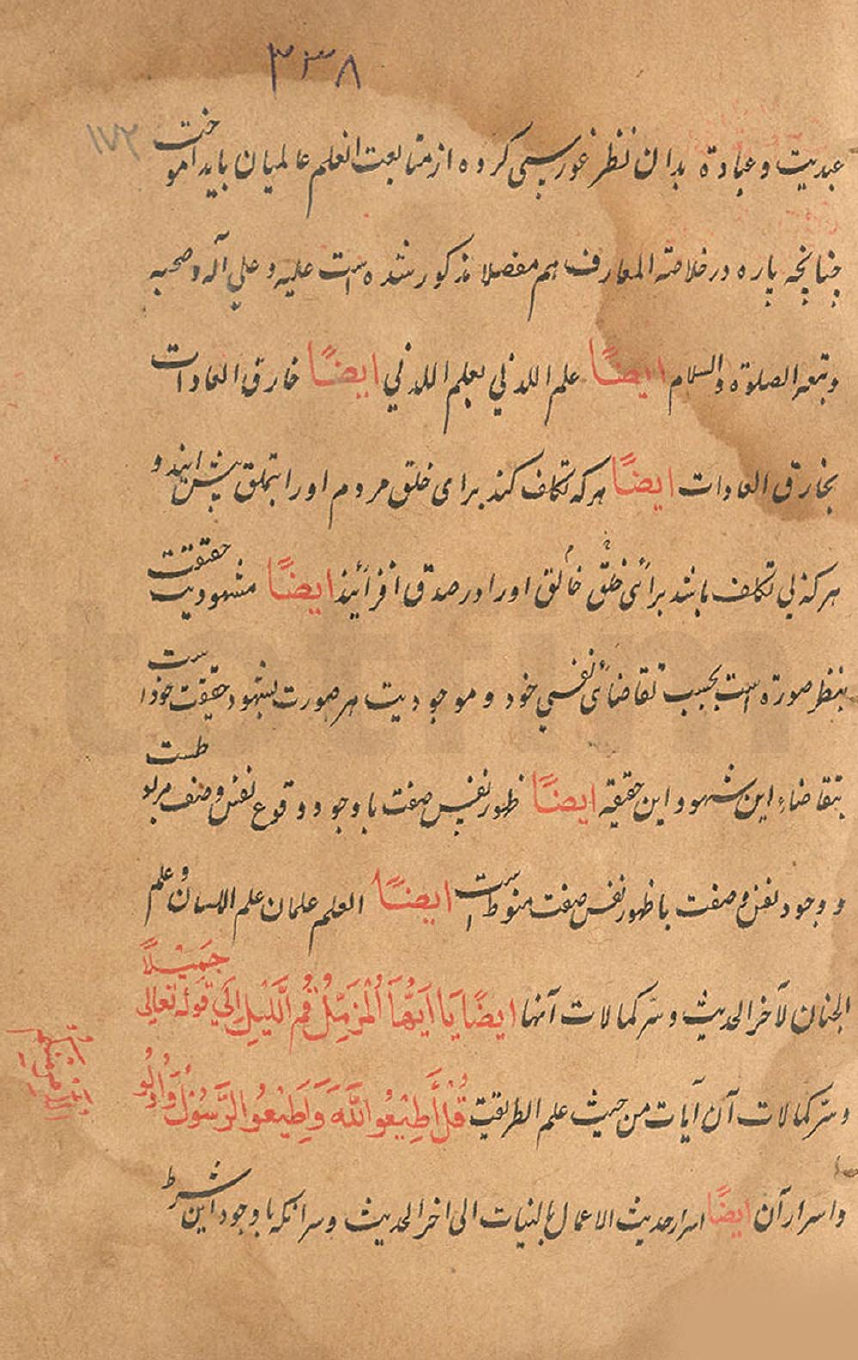 ۳۳۸
۱۷۲
عبدیت و عبادة بدان نظر غور رسی کرده از متابعت اعلم عالمیان باید آموخت
چنانچه پاره در خلاصة المعارف هم مفصلا مذکور شده است علیه و علی آله و صحبه
و تبعه الصلوة والسلام ایضًا علم اللدنی بعلم اللدنی ایضًا خارق العادات
بخارق العادات ایضًا هر که تکلف کند برای خلق مردم اورا بتملق پیش ایند و
هر که بی تکلف باشد برائی خلق خالق اورا در صدق افزائیند ایضًا مشهودیت حقیقت
بنظر صورة است بحسب تقاضائی نفسی خود و موجودیت هر صورت بشهود حقیقت خود است
بتقاضاء این شهود و این حقیقة ایضًا ظهور نفس صفت با وجود و وقوع نفس وصف مربوطست
و وجود نفس وصفت با ظهور نفس صفت منوط است ایضًا العلم علمان علم اللسان و علم
الجنان لآخر الحدیث و سرّ کمالات آنها ایضًا یَا اَیُّهَا الْمُزَمِّلُ قُمِ الَّلیْلَ اِلَی قَوْلِه تعالی جَمِیْلًا
و سرّ کمالات آن آیات من حیث علم الطریقت قُلْ أَطِیْعُو اللَّهَ وَاَطِیْعُو الرَّسُوْلَ وَاُولُو
و اسرار آن ایضًا اسرار حدیث الاعمال بالنیات الی اخر الحدیث و سر انکه با وجود این شرط